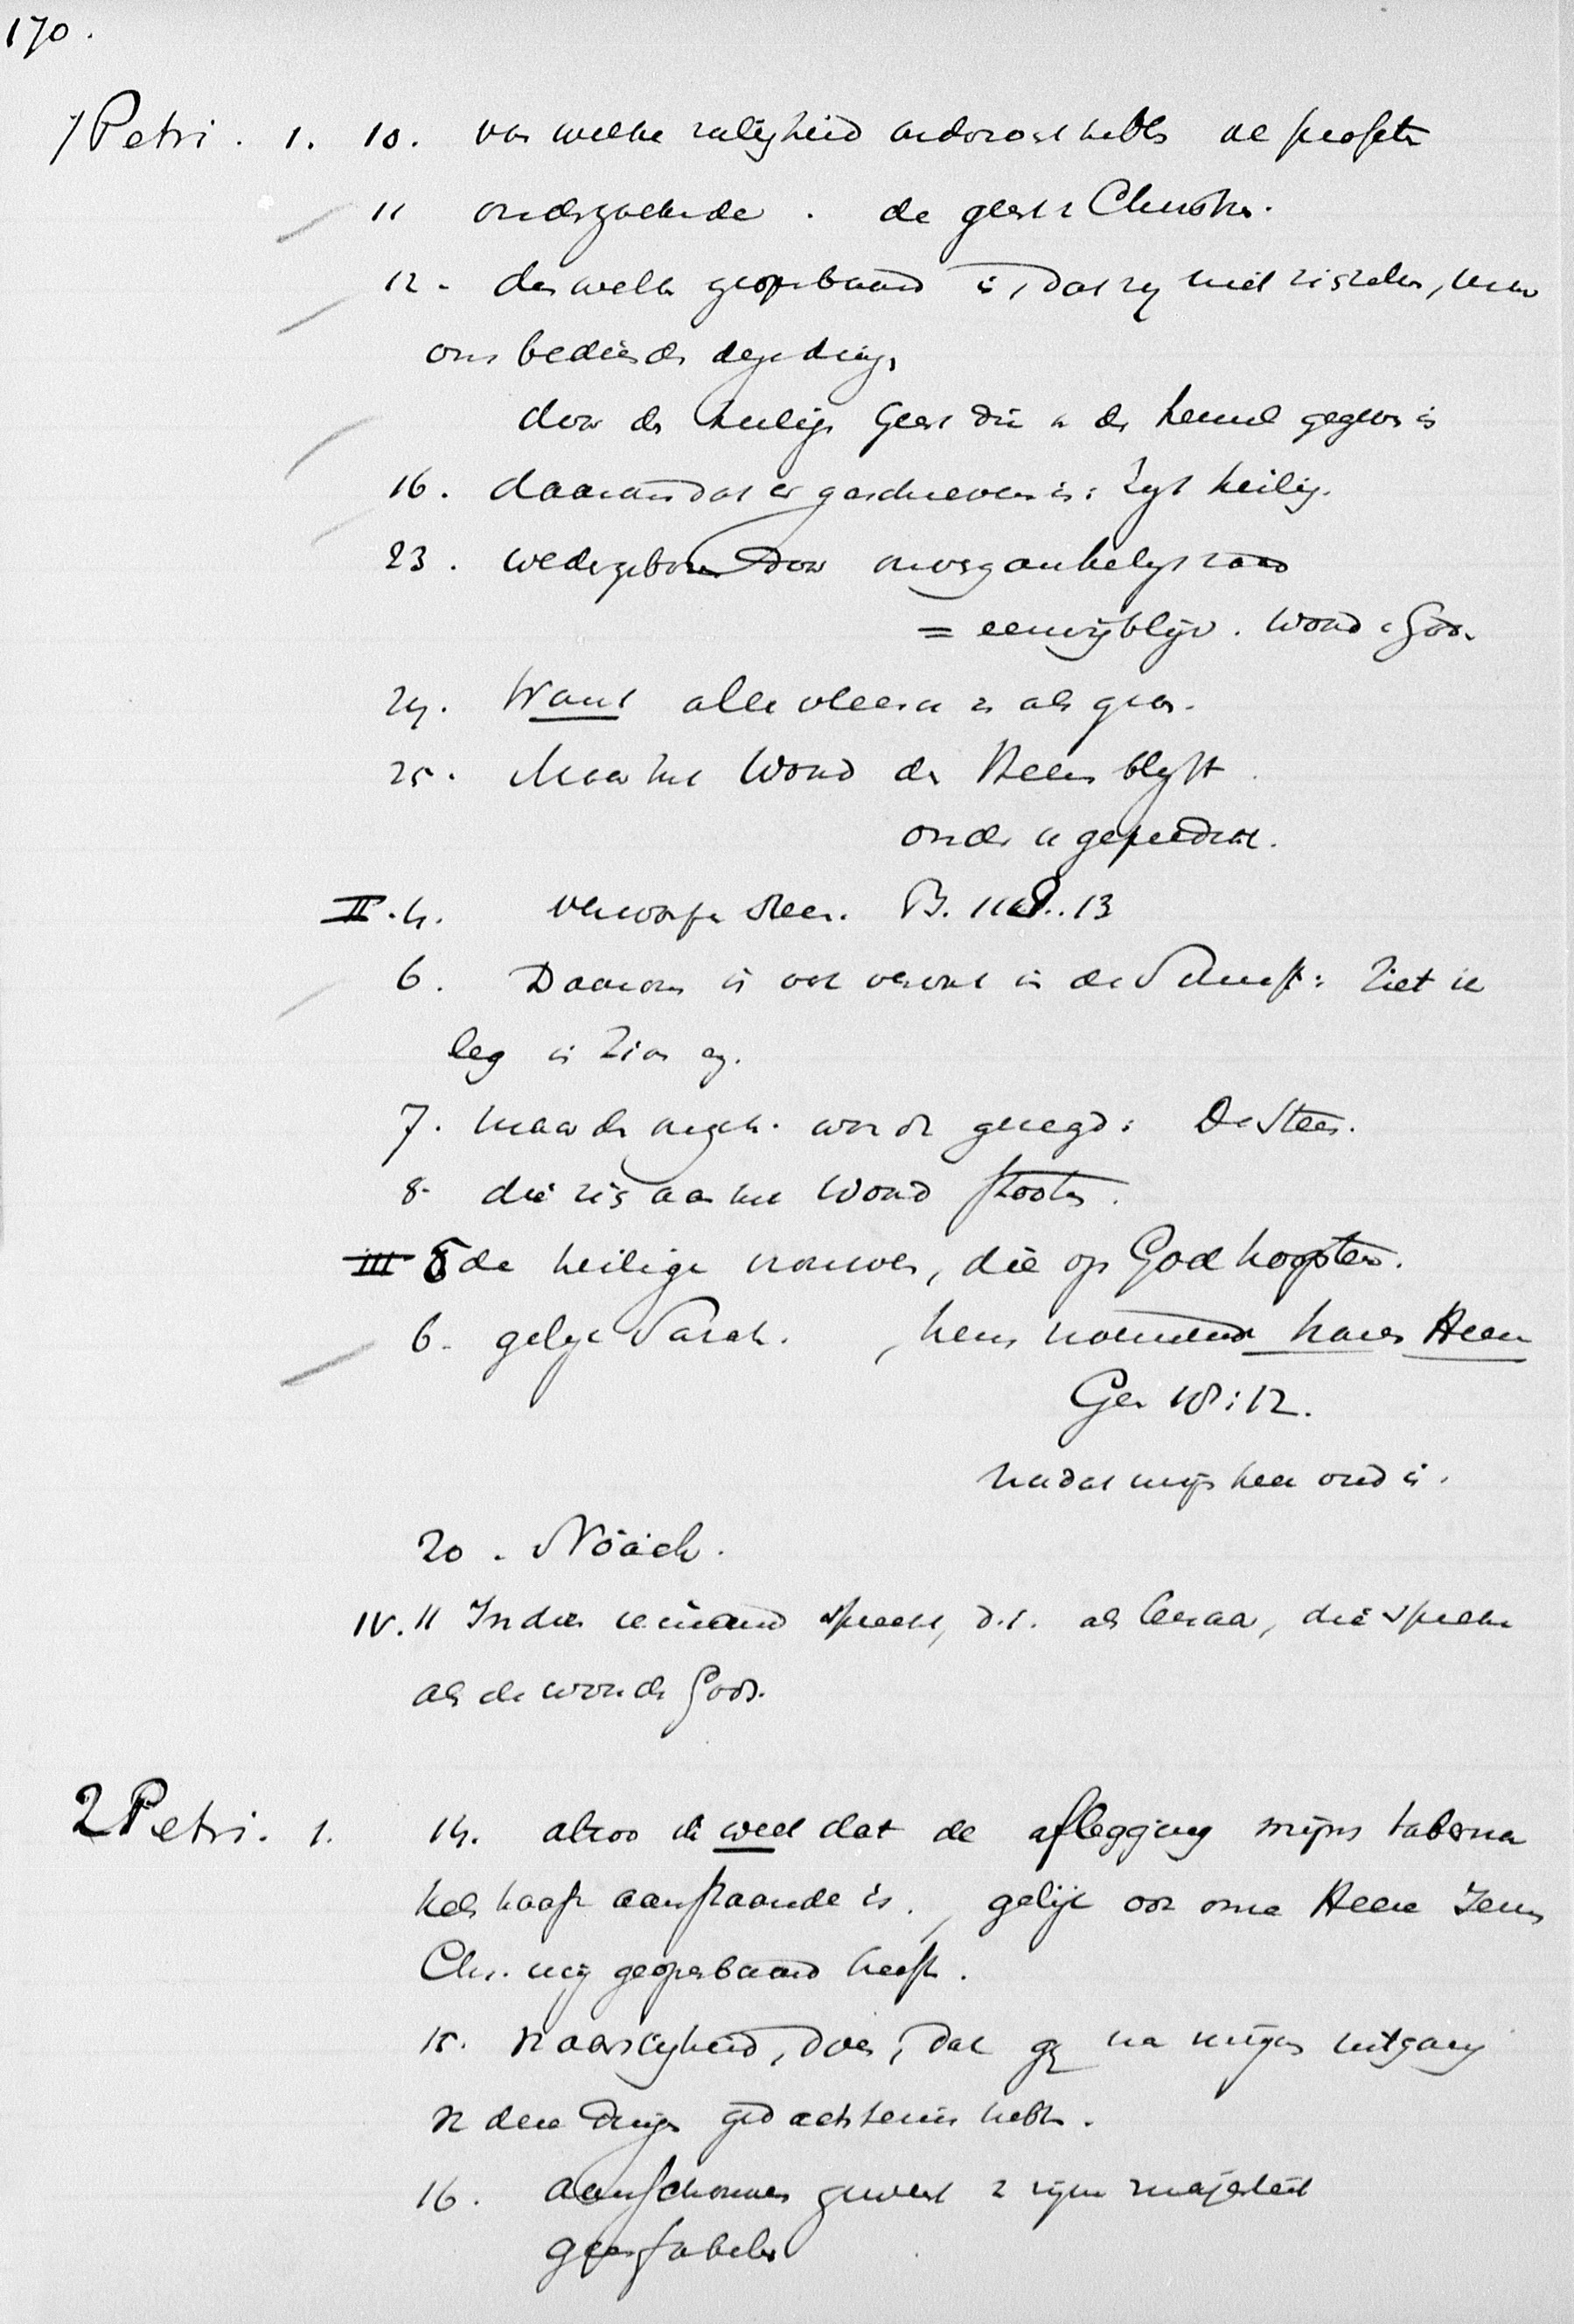 170.
1 Petri. 1. 10. van welke zaligheid onderzocht hebben de profeten
11 onderzoekende. de geest v Christus.
12. den welken geopenbaard is, dat zij niet zich zelven, maar
ons bedienden deze dingen
door den heiligen Geest die v den hemel gezonden is
16. daarom dat er geschreven is: Zijt heilig.
23. wedergeboren door onvergankelijk zaad
= eeuwigblijv. Woord v God.
24. Want alle vleesch is als gras.
25. Maar het Woord des Heeren blijft.
onder u gepredikt.
II. 4. verworpen steen. Ps. 118..13
6. Daarom is ook vervat in de Schrift: Ziet ik
leg in Zion ez.
7. maar den ongeh. wordt gezegd: De Steen.
8. die zich aan het Woord stooten.
III 5 de heilige vrouwen, die op God hoopten.
6. gelijk Sarah. , hem noemende haren Heer
Gen 18:12.
nadat mijn heer oud is.
20. Nöach.
IV. 11 Indien iemand spreekt, d.i. als leeraar, die spreke
als de woorden Gods.
2 Petri. 1. 14. alzoo ik weet dat de aflegging mijns taberna
kels haast aanstaande is., gelijk ook onze Heere Jezus
Chr. mij geopenbaard heeft.
15. naarstigheid, doen, dat gij na mijnen uitgang
v deze dingen gedachtenis hebben.
16. aanschouwers geweest v zijne majesteit
geen fabelen